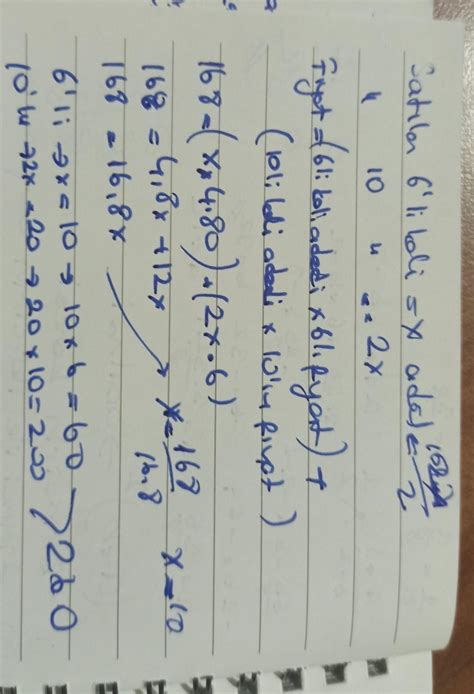 Satılan 6'lı koli = x adet =
" 10 " " = 2x
Fiyat = (6lı koli adedi x 6lı fiyat) +
(10lı koli adedi x 10'lu fiyat)
168 = (x . 4.80) + (2x . 6)
168 = 4,8x + 12x
168 = 16,8x
x = 168 / 16.8 x = 10
6'lı → x = 10 → 10 x 6 = 60
10'lu → 2x = 20 → 20 x 10 = 200
260